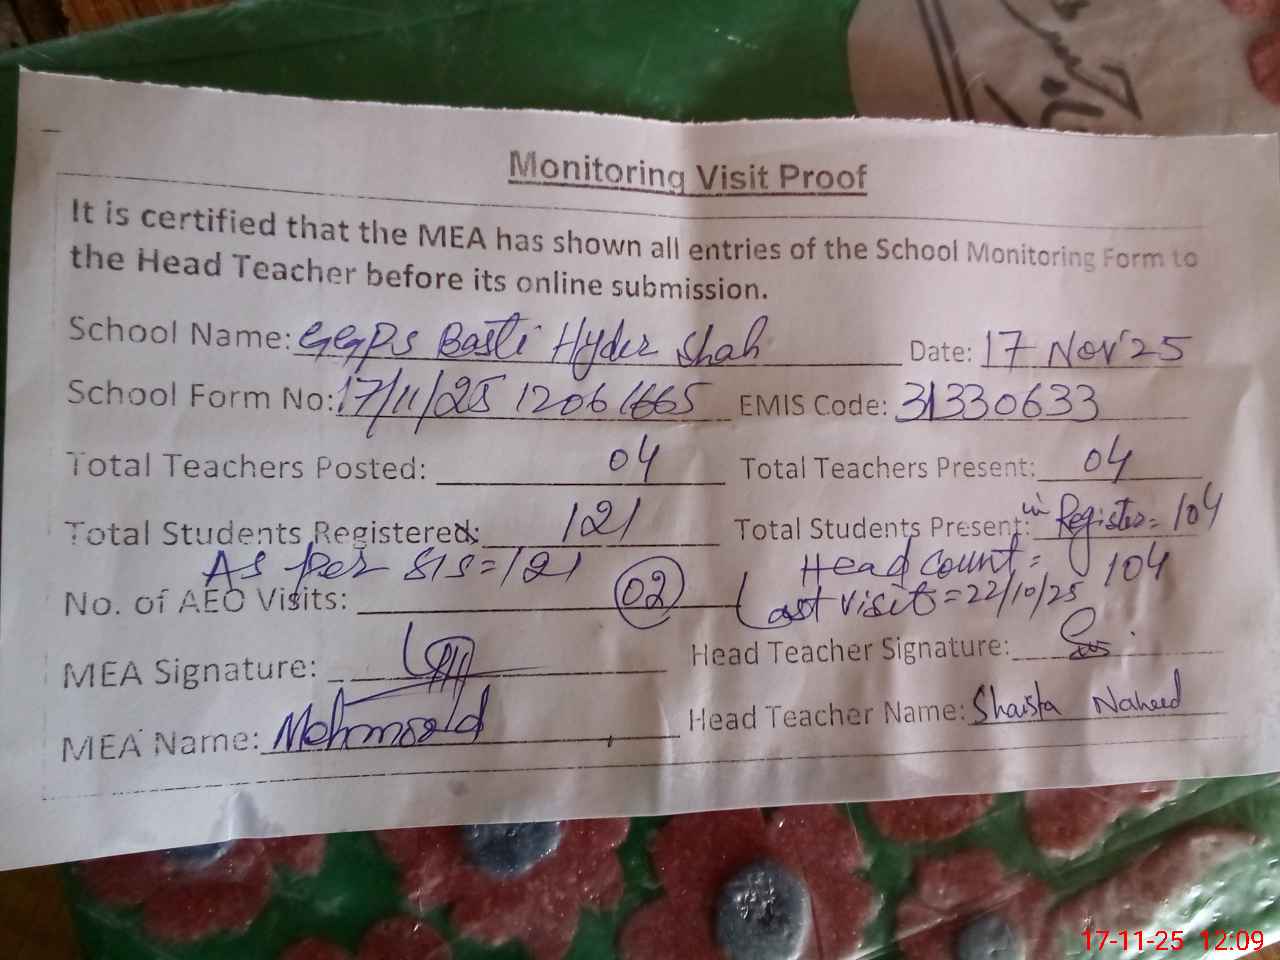 Monitoring Visit Proof
It is certified that the MEA has shown all entries of the School Monitoring Form to
the Head Teacher before its online submission.
School Name: GGPS Basti Hyder Shah Date: 17 Nov'25
School Form No: 17/11/25 12061665 EMIS Code: 31330633
Total Teachers Posted: 04 Total Teachers Present: 04
Total Students Registered: 121 Total Students Present: in Register = 104
As per SIS = 121 Head count = 104
No. of AEO Visits: 02 Last visit = 22/10/25
MEA Signature: Head Teacher Signature:
MEA Name: Mehmood Head Teacher Name: Shaista Naheed
17-11-25 12:09